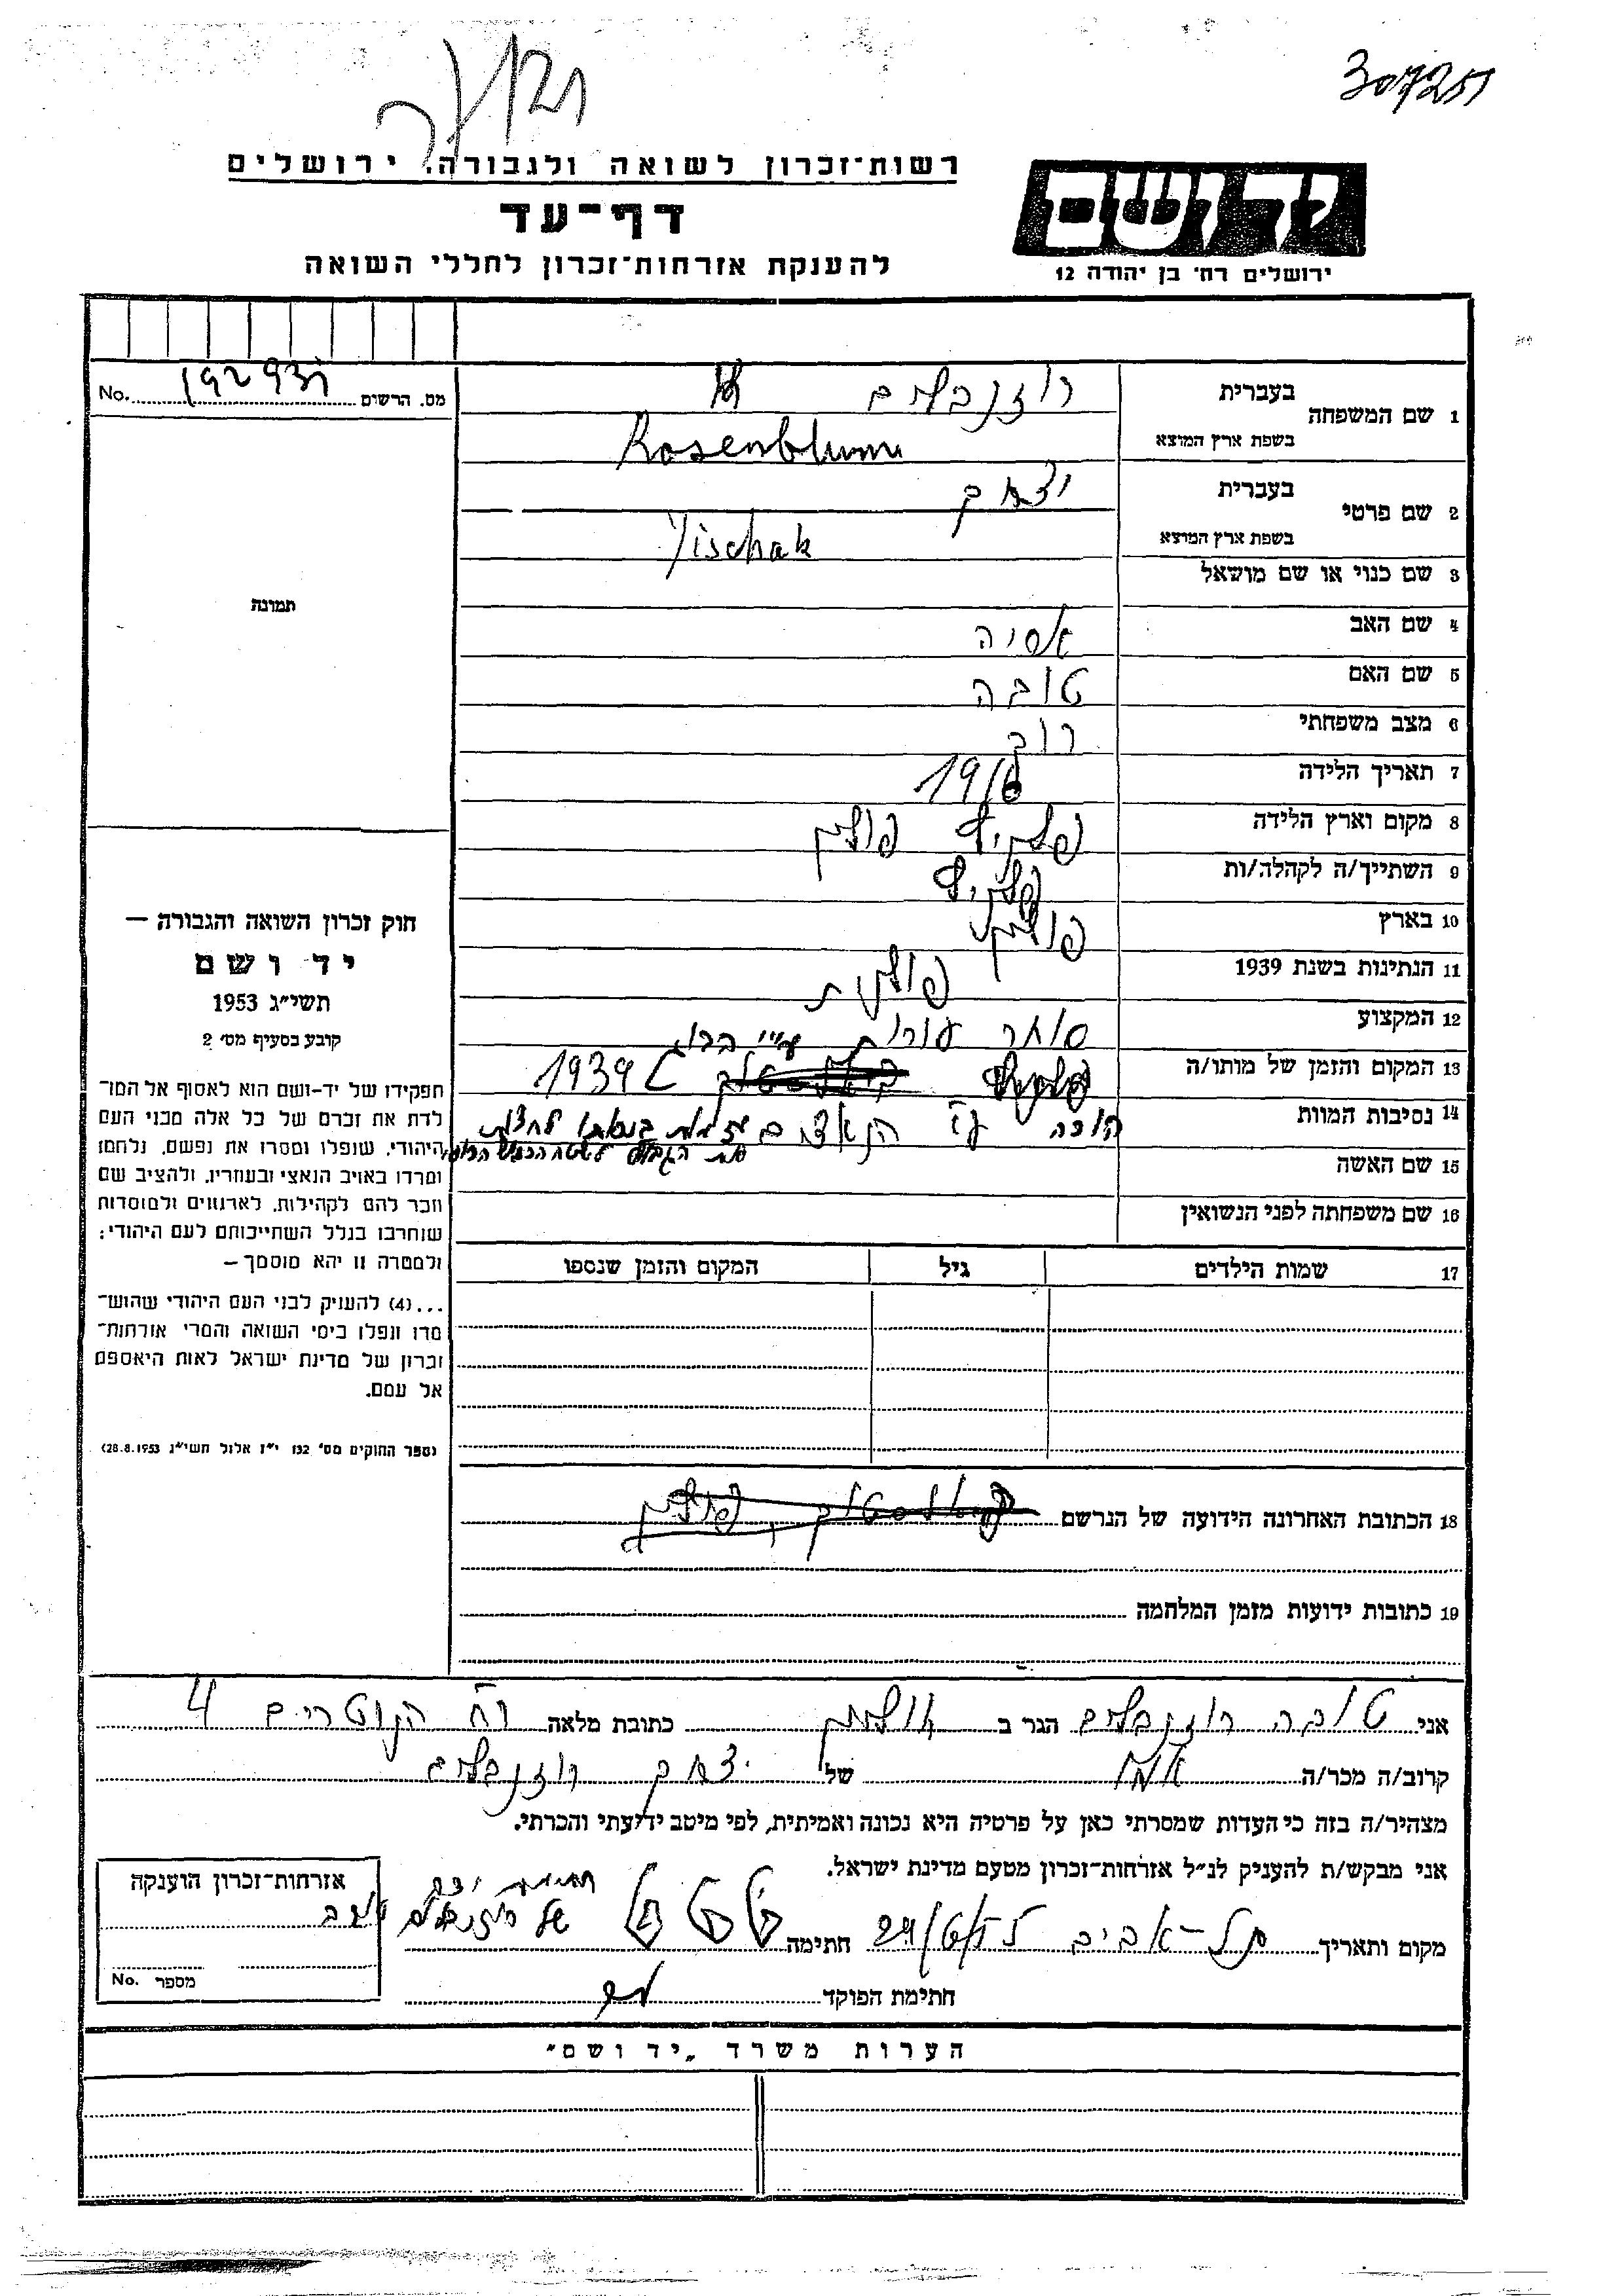 307251
רשות־זכרון לשואה ולגבורה, ירושלים
דף־עד
להענקת אזרחות־זכרון לחללי השואה
יד ושם
ירושלים רח׳ בן יהודה 12
מס. הרשום No. 192937
1 שם המשפחה בעברית רוזנבלום
בשפת ארץ המוצא Rosenblum
2 שם פרטי בעברית יצחק
בשפת ארץ המוצא Yischak
3 שם כנוי או שם מושאל
4 שם האב אסיה
5 שם האם טובה
6 מצב משפחתי רווק
7 תאריך הלידה 1916
8 מקום וארץ הלידה פולין
9 השתייך/ה לקהלה/ות
10 בארץ פולין
11 הנתינות בשנת 1939 פולנית
12 המקצוע סוחר עורות
13 המקום והזמן של מותו/ה 1939
14 נסיבות המוות הוכה ע״י הנאצים
15 שם האשה
16 שם משפחתה לפני הנשואין
17 שמות הילדים גיל המקום והזמן שנספו
18 הכתובת האחרונה הידועה של הנרשם
19 כתובות ידועות מזמן המלחמה
תמונה
חוק זכרון השואה והגבורה —
יד ושם
תשי״ג 1953
קובע בסעיף מס׳ 2
תפקידו של יד-ושם הוא לאסוף אל המו־
לדת את זכרם של כל אלה מבני העם
היהודי, שנפלו ומסרו את נפשם, נלחמו
ומרדו באויב הנאצי ובעוזריו, ולהציב שם
וזכר להם לקהילות, לארגונים ולמוסדות
שנחרבו בגלל השתייכותם לעם היהודי;
ולמטרה זו יהא מוסמך —
...(4) להעניק לבני העם היהודי שהוש־
מדו ונפלו בימי השואה והמרי אזרחות־
זכרון של מדינת ישראל לאות היאספם
אל עמם.
(ספר החוקים מס׳ 132 י״ז אלול תשי״ג 28.8.1953)
אני טובה רוזנבלום הגר ב כתובת מלאה רח׳ 4
קרוב/ה מכר/ה אמו של יצחק רוזנבלום
מצהיר/ה בזה כי העדות שמסרתי כאן על פרטיה היא נכונה ואמיתית, לפי מיטב ידיעתי והכרתי.
אני מבקש/ת להעניק לנ״ל אזרחות־זכרון מטעם מדינת ישראל.
מקום ותאריך תל-אביב 29/6/55 חתימה
חתימת הפוקד
אזרחות־זכרון הוענקה
מספר No.
הערות משרד „יד ושם״